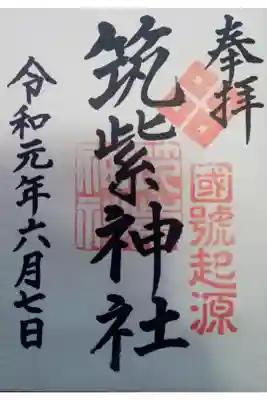 奉拝
國號起源
筑紫神社
令和元年六月七日